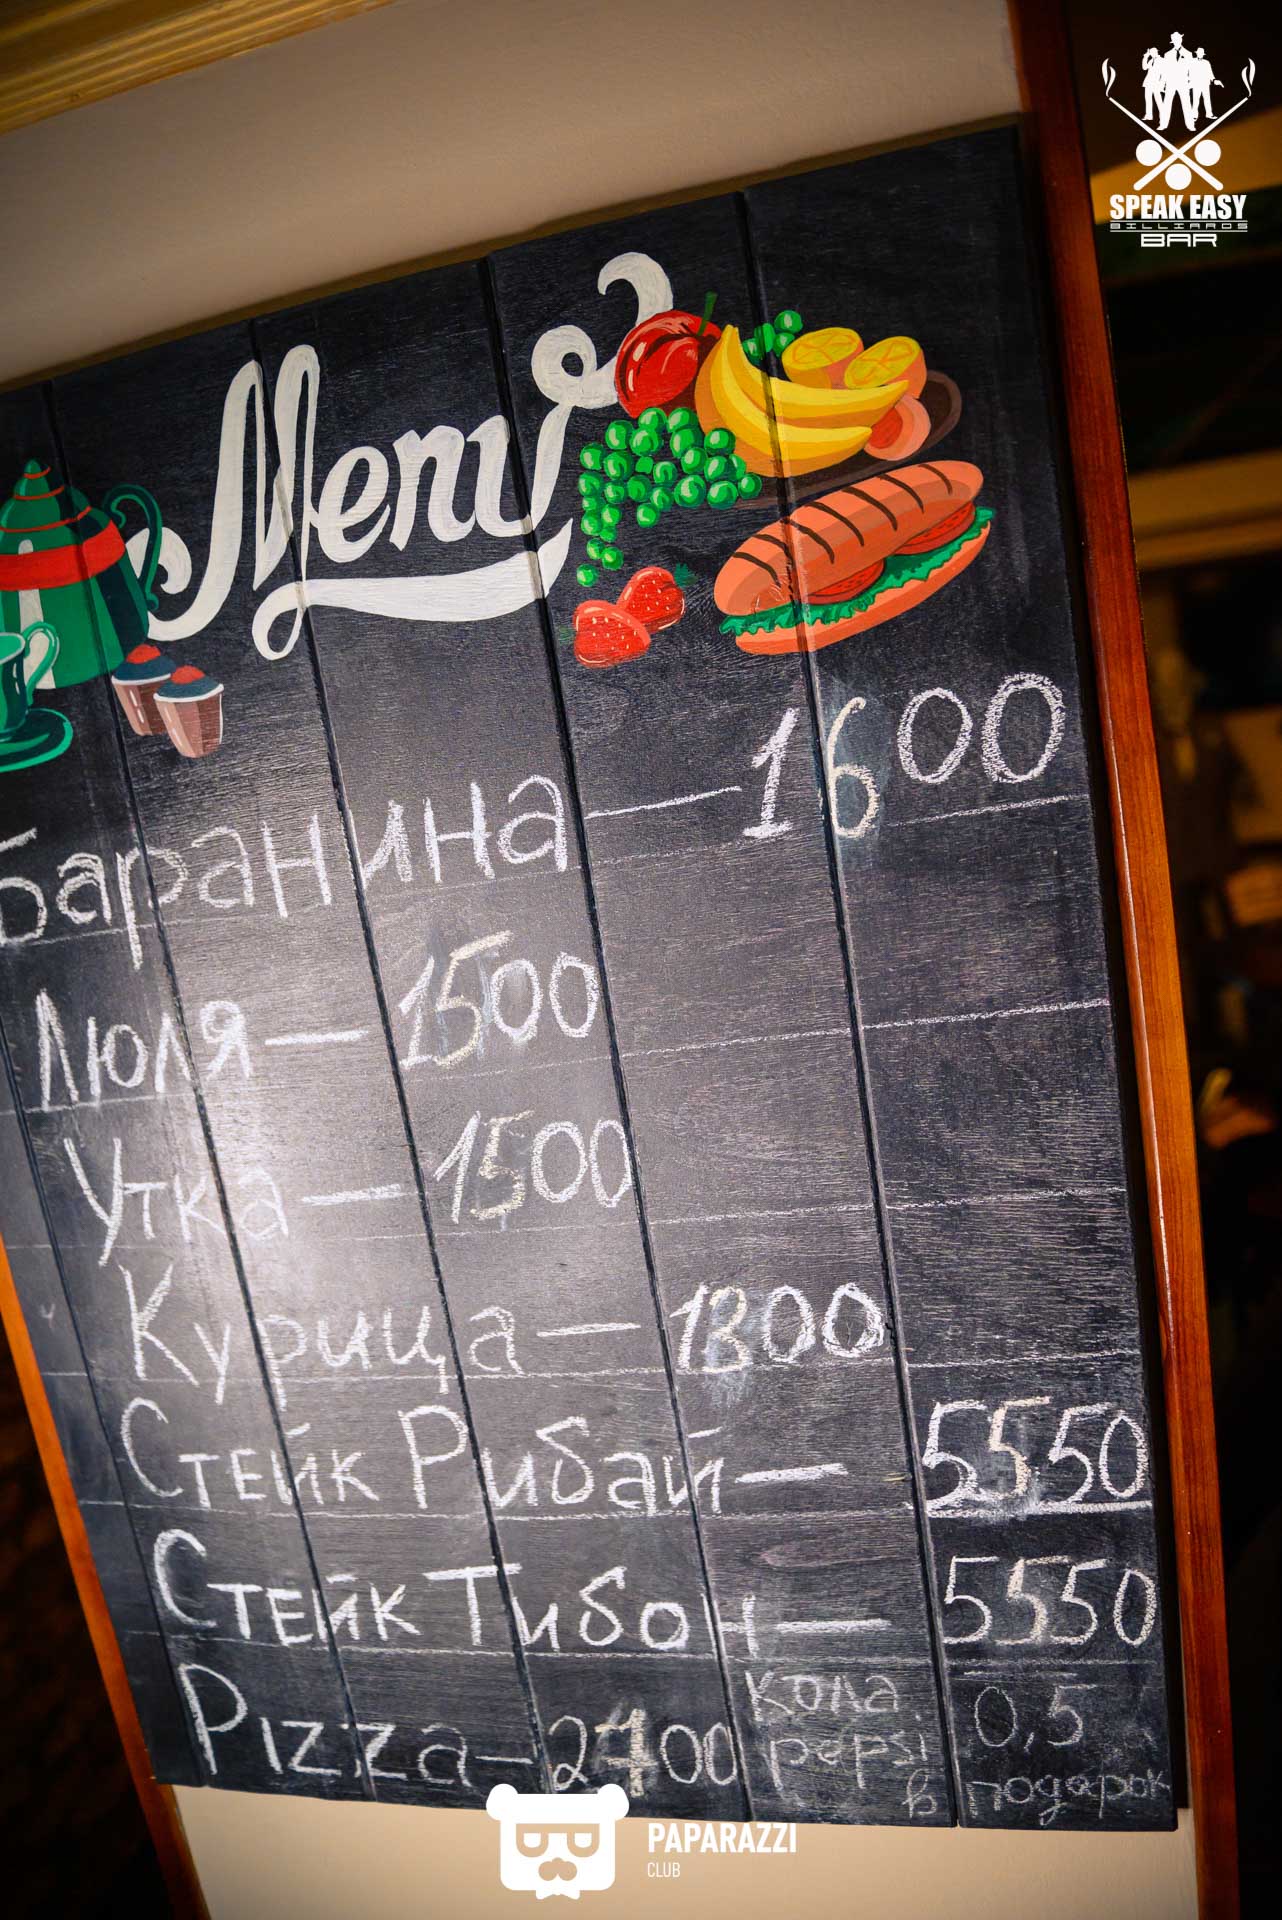 SPEAK EASY
BILLIARDS
BAR
Menu
Баранина — 1600
Люля — 1500
Утка — 1500
Курица — 1300
Стейк Рибай — 5550
Стейк Тибон — 5550
Pizza - 2700 кола 0,5
pepsi
в подарок
PAPARAZZI
CLUB